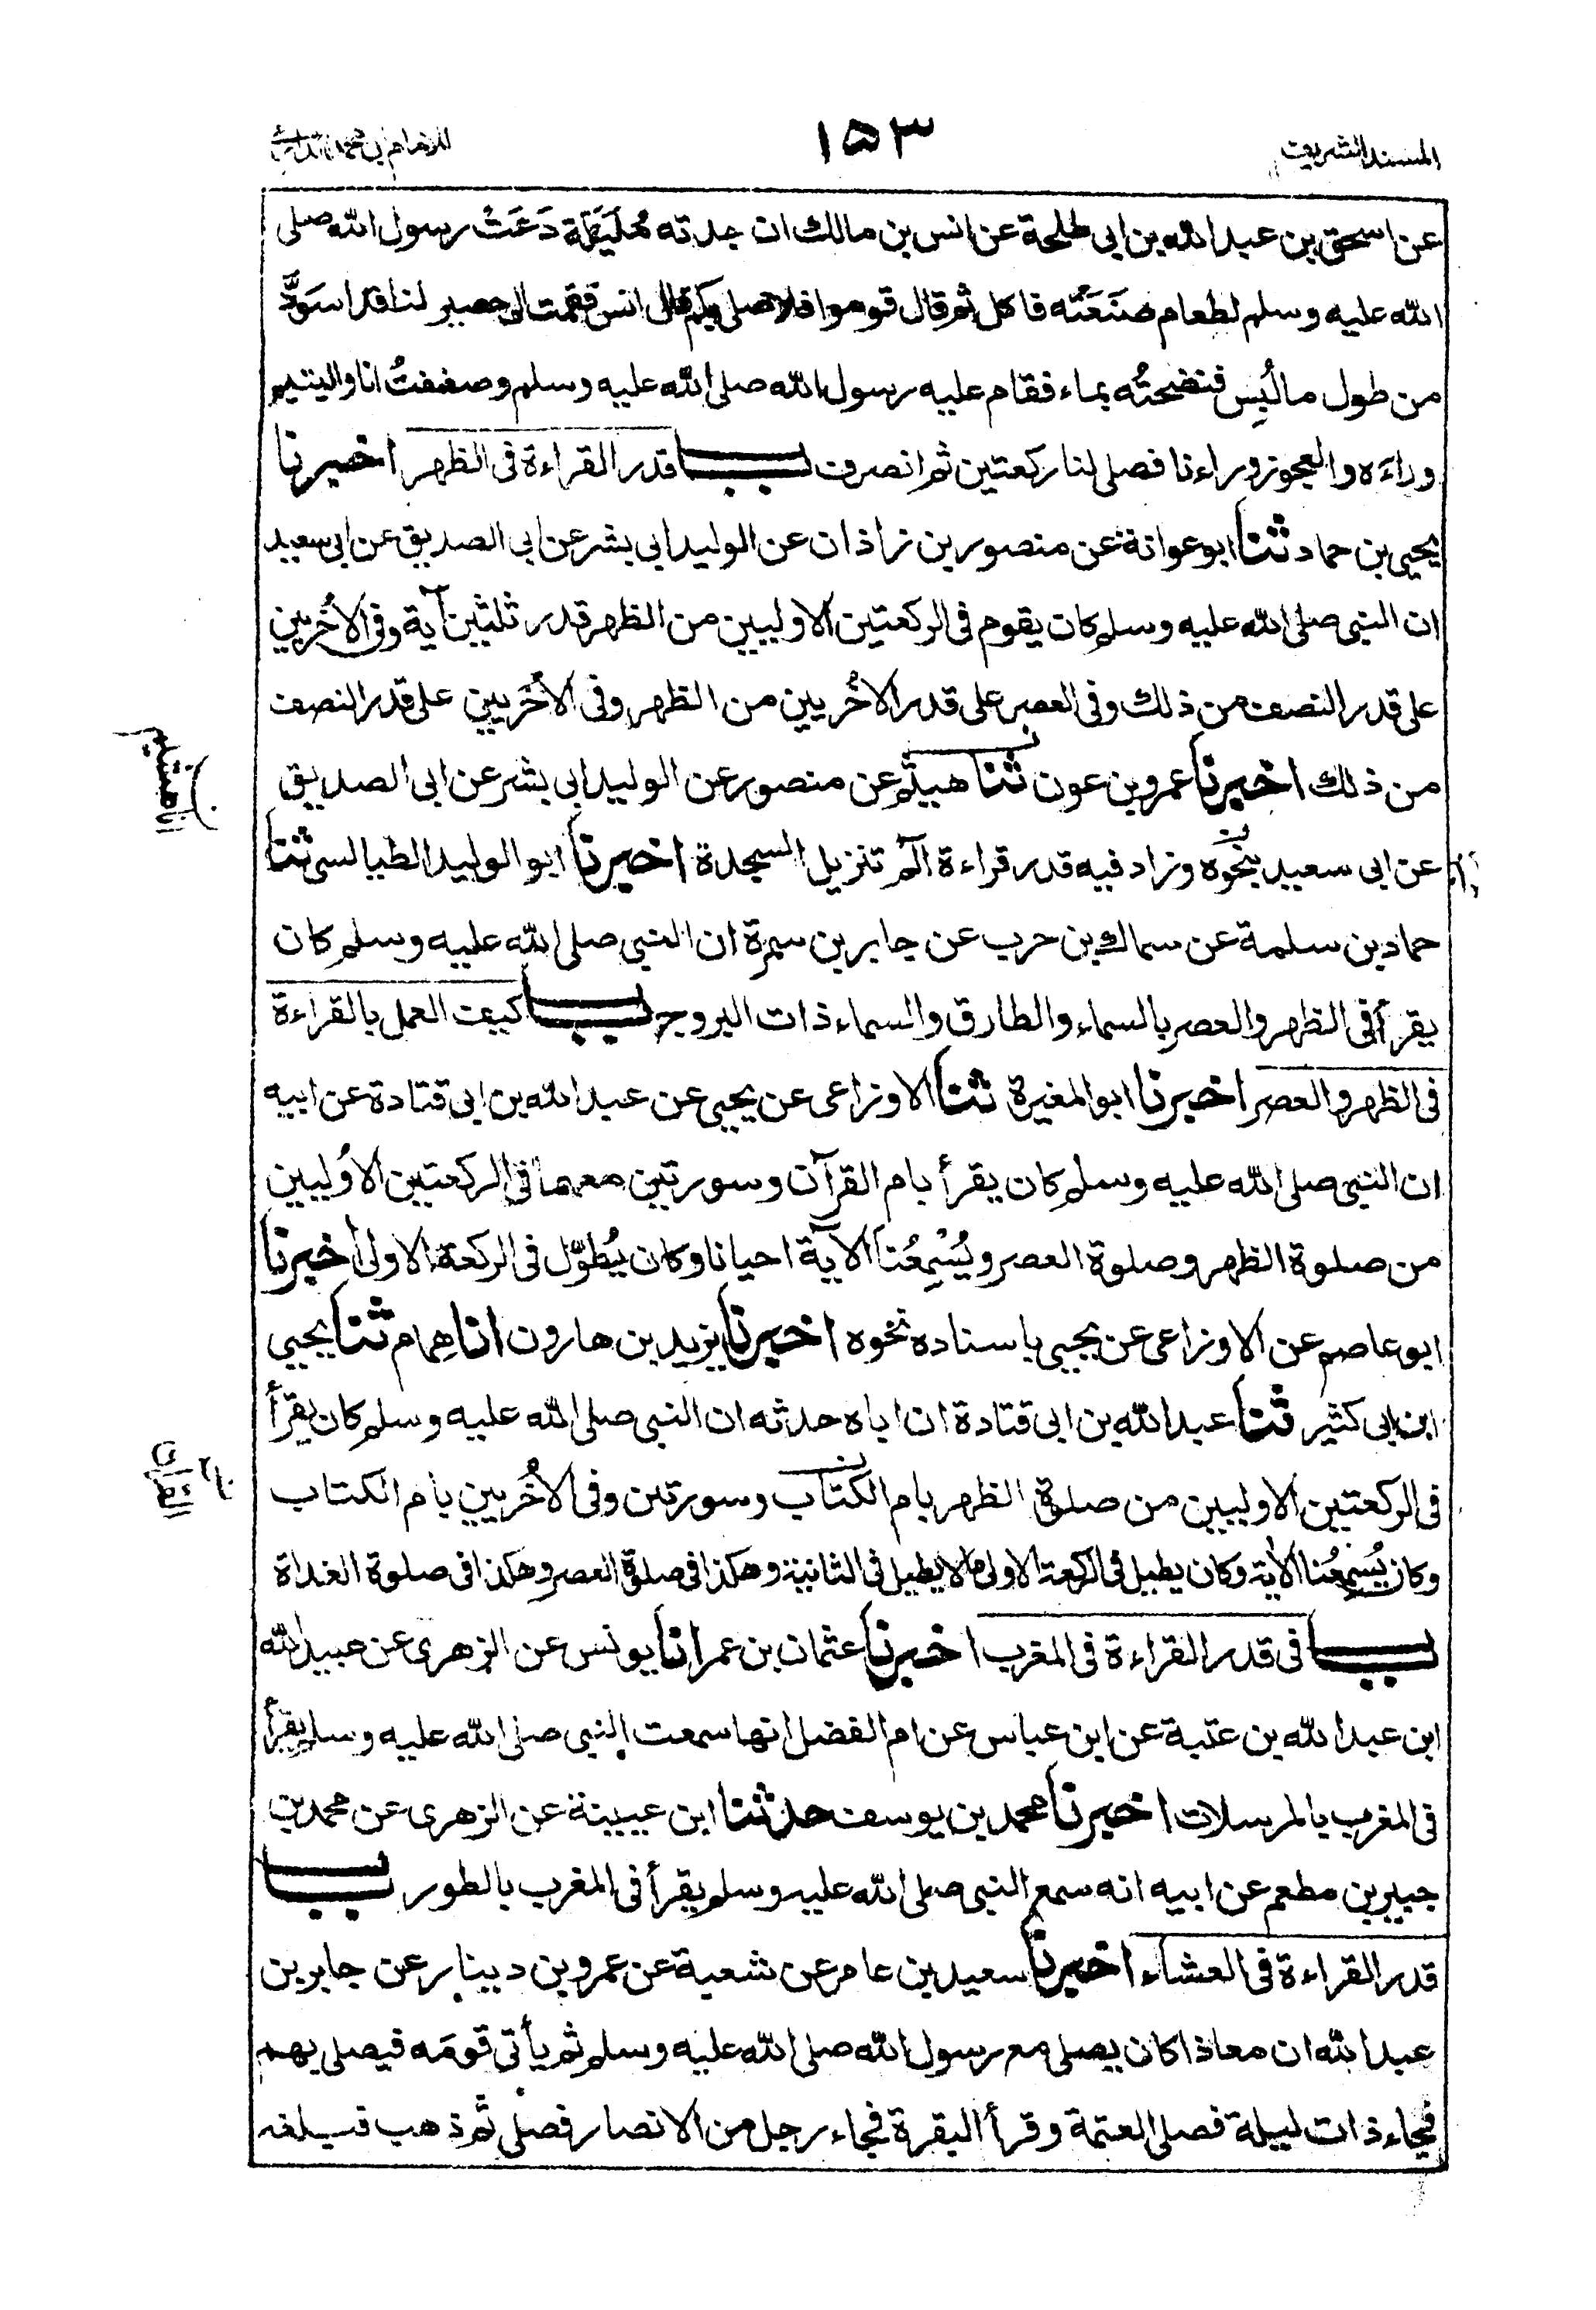 المسند الشريف
١٥٣
عن اسحق بن عبد الله بن ابي طلحة عن انس بن مالك ان جدته مُلَيْكَة دَعَتْ رسول الله صلى
الله عليه وسلم لطعام صَنَعَتْه فاكل ثم قال قوموا فلاصلى بكم قال انس فقمت الى حصير لنا قد اسوَدَّ
من طول ما لُبِس فنضحتُه بماء فقام عليه رسول الله صلى الله عليه وسلم وصففتُ انا واليتيم
وراءَه والعجوز وراءنا فصلى لنا ركعتين ثم انصرف باب قدر القراءة فى الظهر اخبرنا
يحيى بن حماد ثنا ابو عوانة عن منصور بن زاذان عن الوليد ابي بشر عن ابي الصديق عن ابي سعيد
ان النبى صلى الله عليه وسلم كان يقوم فى الركعتين الاوليين من الظهر قدر ثلثين آية وفى الاُخريين
على قدر النصف من ذلك وفى العصر على قدر الاُخريين من الظهر وفى الاُخريين على قدر النصف
من ذلك اخبرنا عمرو بن عون ثنا هشيم عن منصور عن الوليد ابي بشر عن ابى الصديق
انا هشيم
عن ابى سعيد بنحوه وزاد فيه قدر قراءة الٓمٓ تنزيل السجدة اخبرنا ابو الوليد الطيالسى ثنا
حماد بن سلمة عن سماك بن حرب عن جابر بن سمرة ان النبى صلى الله عليه وسلم كان
يقرأ فى الظهر والعصر بالسماء والطارق والسماء ذات البروج باب كيف العمل بالقراءة
فى الظهر والعصر اخبرنا ابو المغيرة ثنا الاوزاعى عن يحيى عن عبد الله بن ابى قتادة عن ابيه
ان النبى صلى الله عليه وسلم كان يقرأ بام القرآن وسورتين معهما فى الركعتين الاُوليين
من صلوة الظهر وصلوة العصر ويُسْمِعُنا الآية احيانا وكان يُطوِّل فى الركعة الاولى اخبرنا
ابو عاصم عن الاوزاعى عن يحيى باسناده نحوه اخبرنا يزيد بن هارون انا همام ثنا يحيى
ابن ابى كثير ثنا عبد الله بن ابى قتادة ان اباه حدثه ان النبى صلى الله عليه وسلم كان يقرأ
فى الركعتين الاوليين من صلوة الظهر بام الكتاب وسورتين وفى الاُخريين بام الكتاب
وكان يُسْمِعُنا الآية وكان يطيل فى الركعة الاولى ما لا يطيل فى الثانية وهكذا فى صلوة العصر وهكذا فى صلوة الغداة
باب فى قدر القراءة فى المغرب اخبرنا عثمان بن عمر انا يونس عن الزهرى عن عبيد الله
ابن عبد الله بن عتبة عن ابن عباس عن ام الفضل انها سمعت النبى صلى الله عليه وسلم يقرأ
فى المغرب بالمرسلات اخبرنا محمد بن يوسف حدثنا ابن عيينة عن الزهرى عن محمد بن
جبير بن مطعم عن ابيه انه سمع النبى صلى الله عليه وسلم يقرأ فى المغرب بالطور باب
قدر القراءة فى العشاء اخبرنا سعيد بن عامر عن شعبة عن عمرو بن دينار عن جابر بن
عبد الله ان معاذا كان يصلى مع رسول الله صلى الله عليه وسلم ثم يأتى قومَه فيصلى بهم
فجاء ذات ليلة فصلى العتمة وقرأ البقرة فجاء رجل من الانصار فصلى ثم ذهب فبلغه